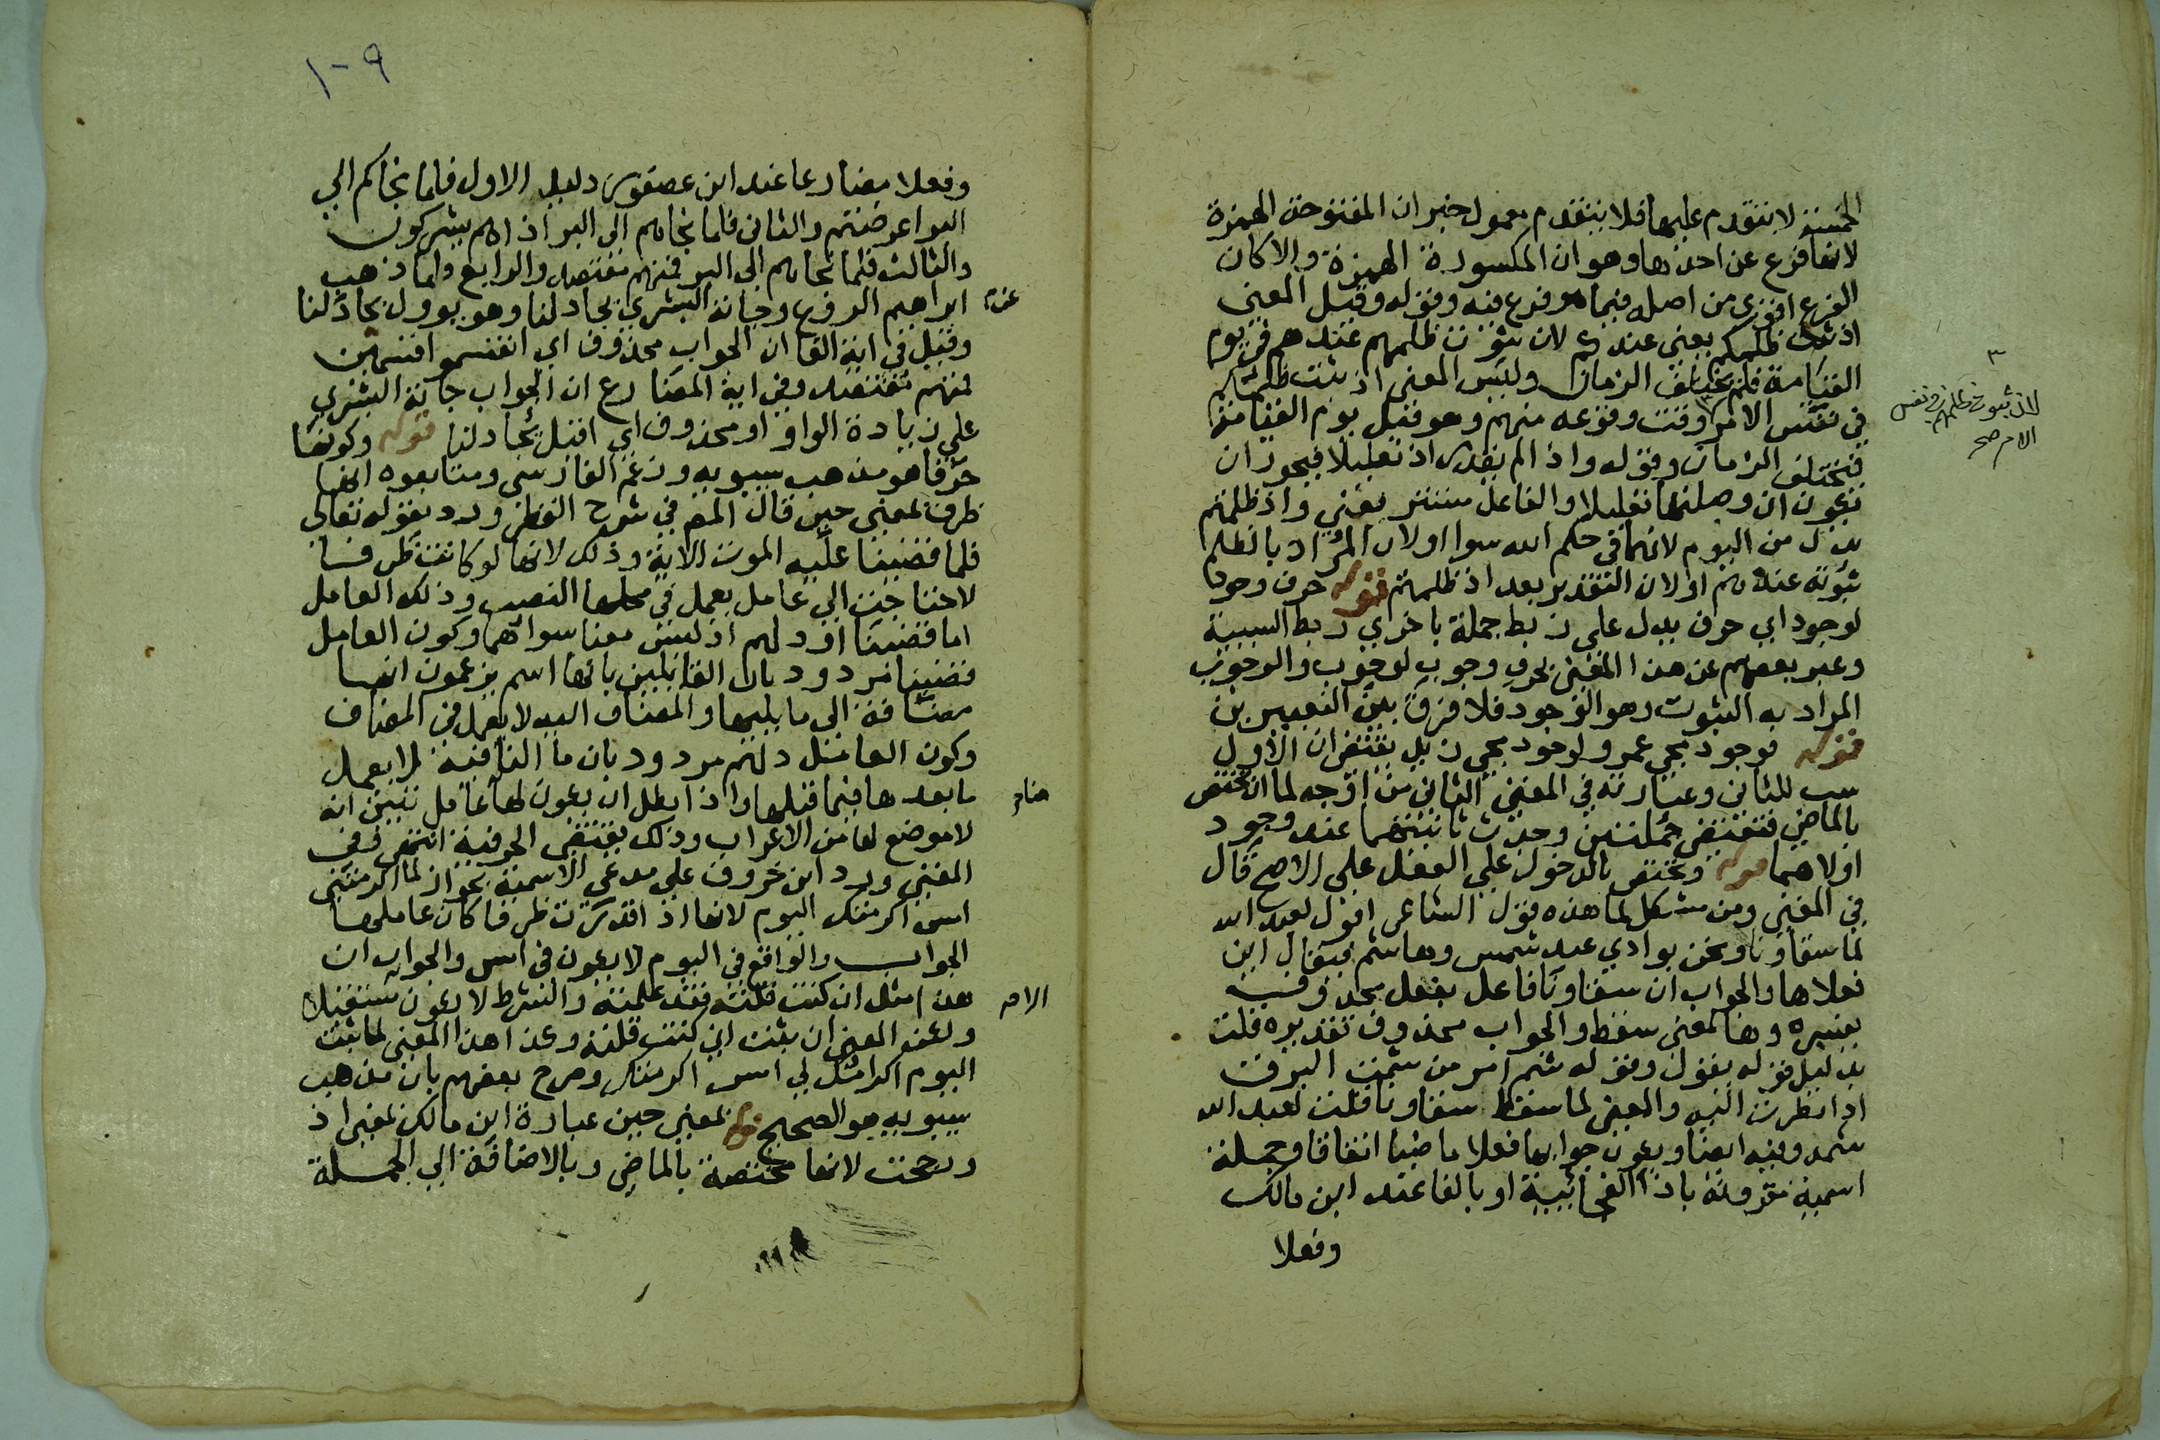 الخمسة لا يتقدم عليها فلا يتقدم معمول خبر ان المفتوحة الهمزة
لانها فرع عن احدها وهو ان المكسورة الهمزة والا كان
الفرع اقوى من اصله فيما هو فرع فيه وقوله وقيل المعنى
اذ ثبت ظلمكم يعني عندكم لان ثبوت ظلمهم عندهم في يوم
القيامة فلم يختلف الزمان وليس المعنى اذ ثبت ظلمكم
في نفس الامر وقت وقوعه منهم وهو قبل يوم القيامة
فيختلف الزمان وقوله واذ الم يقدر اذ تعليلا فيجوز ان
تكون ان وصلتها تعليلا والفاعل مستتر يعني واذ ظلمتم
بدل من اليوم لانهما في حكم الله سوا اولان المراد بالظلم
ثبوته عندهم او لان التقدير بعد اذ ظلمتم قوله حرف وجود
لوجود اي حرف يدل على ربط جملة باخري ربط السببية
وعبر بعضهم عن هذا المعنى بحرف وجوب لوجوب والوجوب
المراد به الثبوت وهو الوجود فلا فرق بين التعبيرين
قوله فوجود مجي عمرو لوجود مجي زيد يقتضى ان الاول
سبب للثاني وعبارته في المغني الثاني من اوجه لما ان تختص
بالماضي فتقتضي جملتين وجدت ثانيتهما عند وجود
اولاهما قوله وتختص بالدخول على الفعل على الاصح قال
في المغني ومن مشكل لما هذه قول الشاعر اقول لعبد الله
لما سقاونا ونحن بوادي عبد شمس وهاشم فيقال اين
فعلاها والجواب ان سقاونا فاعل بفعل محذوف
يفسره وها بمعنى سقط والجواب محذوف تقديره قلت
بدليل قوله يقول وقوله شم امر من شمت البرق
اذا نظرت اليه والمعنى لما سقط سقاونا قلت لعبد الله
شمه وفيه ايضا ويكون جوابها فعلا ماضيا اتفاقا وجملة
اسمية مقرونة باذا الفجائيية او بالفا عند ابن مالك
وفعلا
٣
لان ثبوت ظلمهم في نفس
الامر صح
١٠٩
وفعلا مضارعا عند ابن عصفور دليل الاول فلما نجاكم الي
البر اعرضتم والثاني فلما نجاهم الى البر اذ اهم يشركون
والثالث فلما نجاهم الى البر فمنهم مقتصد والرابع ولما ذهب
عن ابراهيم الروع وجاته البشرى يجادلنا وهو يوول بجادلنا
وقيل في اية الفا ان الجواب محذوف اي انقسموا قسمين
فمنهم مقتصد وفي اية المضارع ان الجواب جاته البشري
على زيادة الواو او محذوف اي اقبل يجادلنا قوله وكونها
حرفا هو مذهب سيبويه وزعم الفارسي ومتابعوه انها
ظرف بمعنى حين قال المص في شرح القطر ورد بقوله تعالى
فلما قضينا عليه الموت الاية وذلك لانها لو كانت ظرفا
لاحتاجت الي عامل يعمل في محلها النصب وذلك العامل
اما قضينا او دلهم اذ ليس معنا سواهما وكون العامل
قضينا مردود بان القايلين بانها اسم يزعمون انها
مضافة الى ما يليها والمضاف اليه لا يعمل في المضاف
وكون العامل دلهم مردود بان ما النافية لا يعمل
ما بعدها فيما قبلها واذا بطل ان يكون لها عامل تبين انه
هناح
لا موضع لها من الاعراب وذلك يقتضى الحرفية انتهى وفي
المغني ورد ابن خروف على مدعي الاسمية بجواز لما اكرمتني
امس اكرمتك اليوم لانها اذ اقدرت ظرفا كان عاملها
الجواب والواقع في اليوم لا يكون في امس والجواب ان
هذا مثل ان كنت قلته فقد علمته والشرط لا يكون مستقبلا
الاح
ولكن المعنى ان ثبت اني كنت قلته وكذا هذا المعنى لما ثبت
اليوم اكرامك لي امس اكرمتك وصرح بعضهم بان مذهب
سيبويه هو الصحيح قوله بمعنى حين عبارة ابن مالك بمعنى اذ
ورجحت لانها مختصة بالماضي وبالاضافة الي الجملة